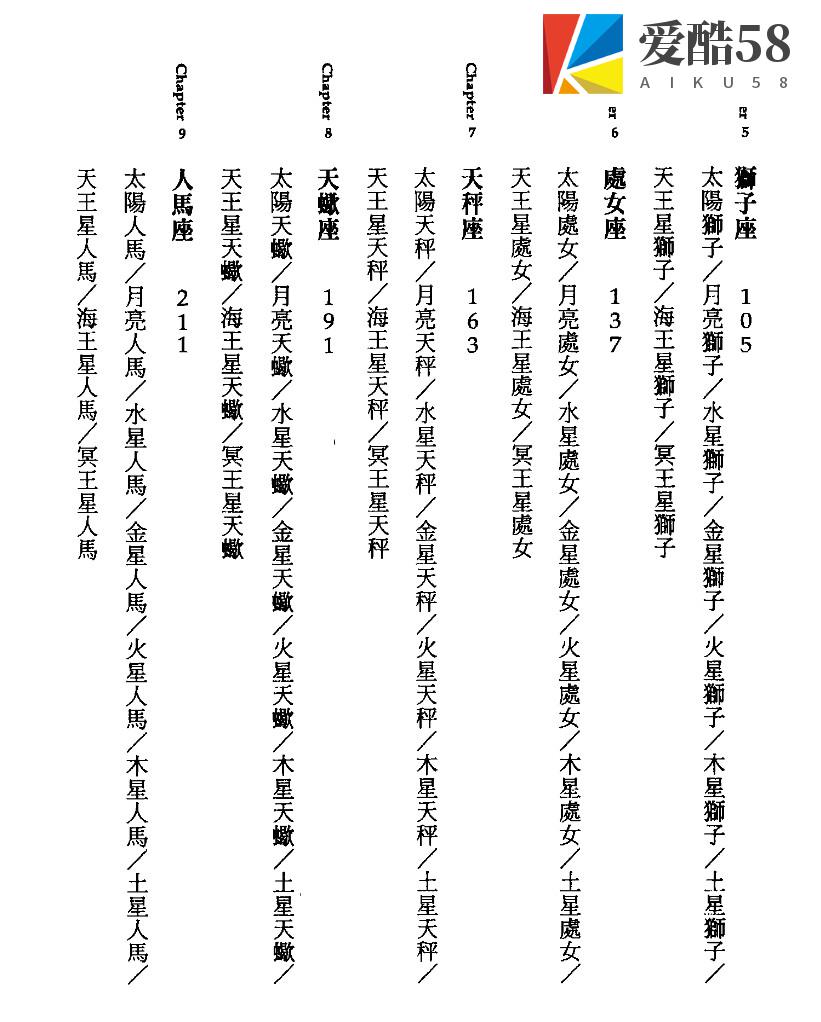 爱酷58
AIKU58
er 5
獅子座 105
太陽獅子／月亮獅子／水星獅子／金星獅子／火星獅子／木星獅子／土星獅子／
天王星獅子／海王星獅子／冥王星獅子
er 6
處女座 137
太陽處女／月亮處女／水星處女／金星處女／火星處女／木星處女／土星處女／
天王星處女／海王星處女／冥王星處女
Chapter 7
天秤座 163
太陽天秤／月亮天秤／水星天秤／金星天秤／火星天秤／木星天秤／土星天秤／
天王星天秤／海王星天秤／冥王星天秤
Chapter 8
天蠍座 191
太陽天蠍／月亮天蠍／水星天蠍／金星天蠍／火星天蠍／木星天蠍／土星天蠍／
天王星天蠍／海王星天蠍／冥王星天蠍
Chapter 9
人馬座 211
太陽人馬／月亮人馬／水星人馬／金星人馬／火星人馬／木星人馬／土星人馬／
天王星人馬／海王星人馬／冥王星人馬